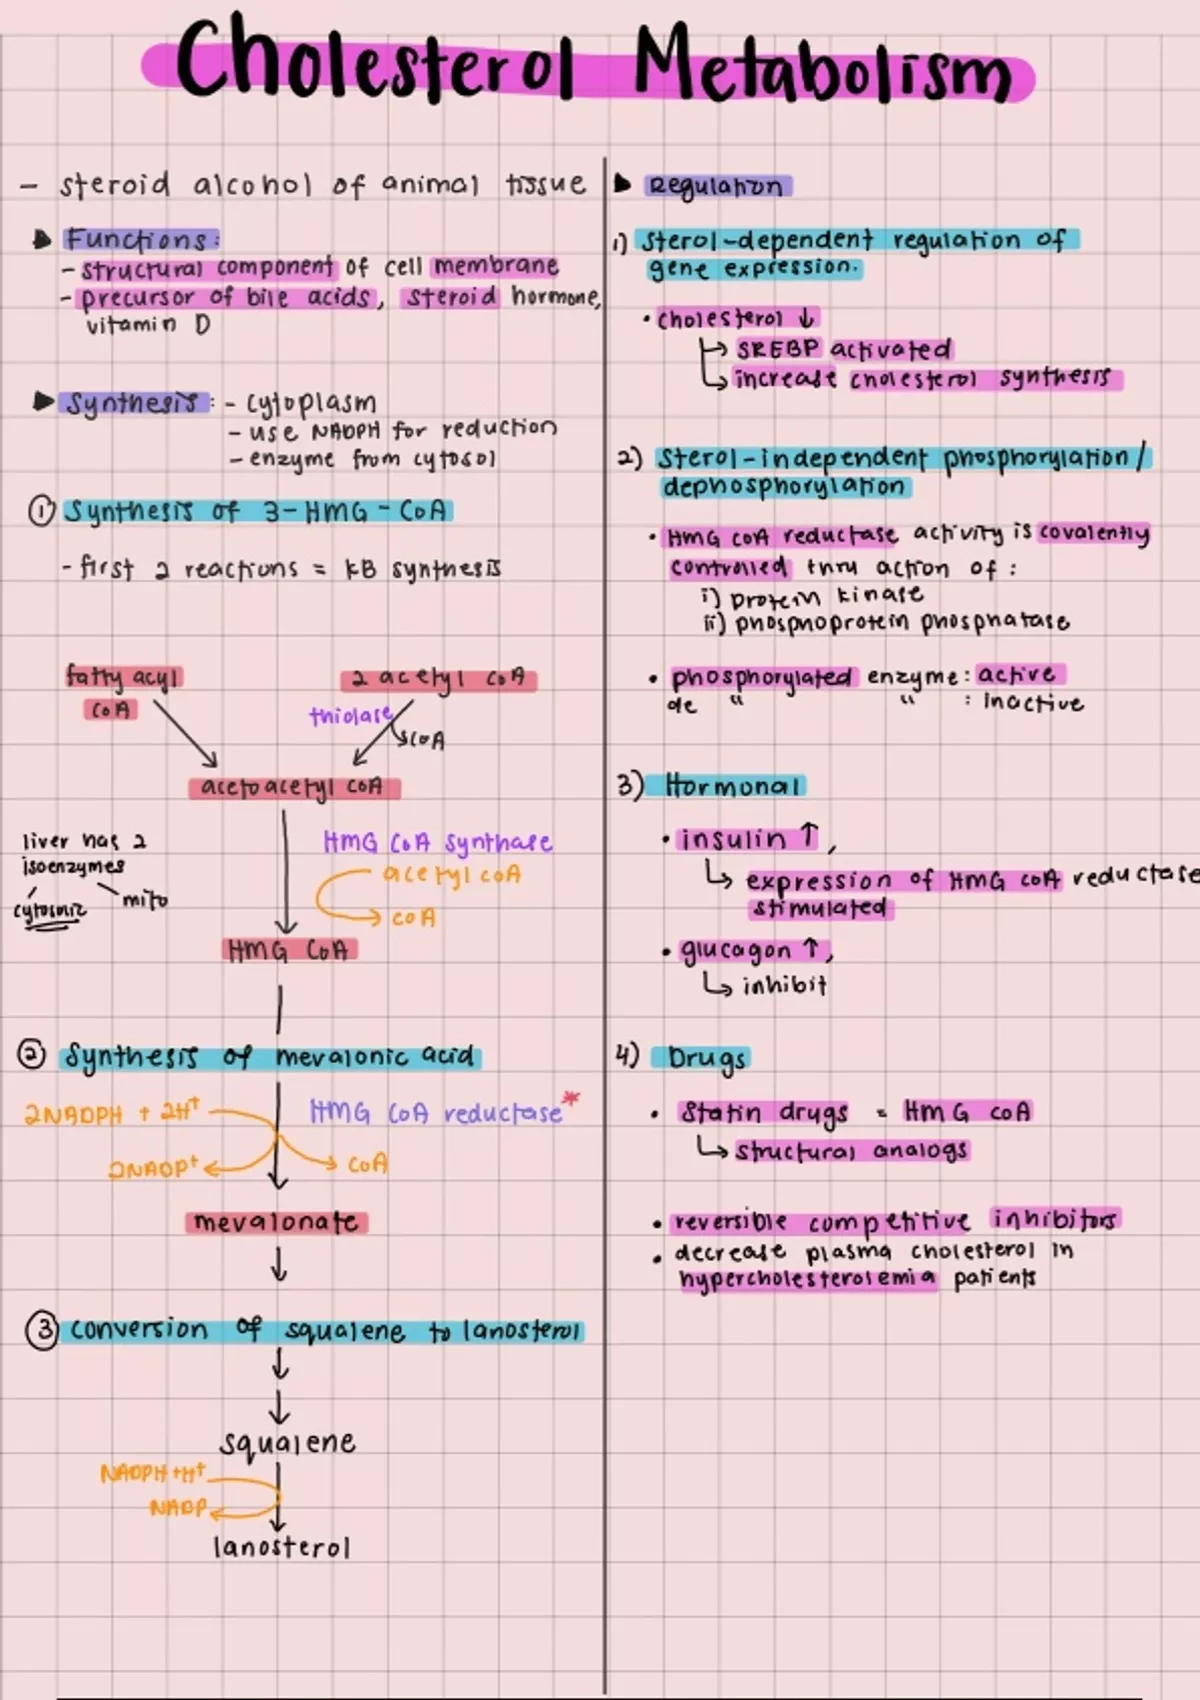 Cholesterol Metabolism
- steroid alcohol of animal tissue
▶ Functions:
- structural component of cell membrane
- precursor of bile acids, steroid hormone,
vitamin D
▶ Synthesis: - cytoplasm
- use NADPH for reduction
- enzyme from cytosol
① Synthesis of 3-HMG-CoA
- first 2 reactions = KB synthesis
fatty acyl
CoA
2 acetyl CoA
thiolase
CoA
acetoacetyl CoA
liver has 2
isoenzymes
cytosolic
mito
HMG CoA synthase
acetyl CoA
CoA
HMG CoA
② Synthesis of mevalonic acid
2NADPH + 2H⁺
HMG CoA reductase*
2NADP⁺
CoA
mevalonate
③ conversion of squalene to lanosterol
squalene
NADPH +H⁺
NADP
lanosterol
▶ Regulation
1) Sterol-dependent regulation of
gene expression.
• cholesterol ↓
↳ SREBP activated
↳ increase cholesterol synthesis
2) Sterol-independent phosphorylation/
dephosphorylation
• HMG CoA reductase activity is covalently
controlled thru action of:
i) protein kinase
ii) phosphoprotein phosphatase
• phosphorylated enzyme: active
de " " : inactive
3) Hormonal
• insulin ↑,
↳ expression of HMG CoA reductase
stimulated
• glucagon ↑,
↳ inhibit
4) Drugs
• Statin drugs = HMG CoA
↳ structural analogs
• reversible competitive inhibitors
• decrease plasma cholesterol in
hypercholesterolemia patients